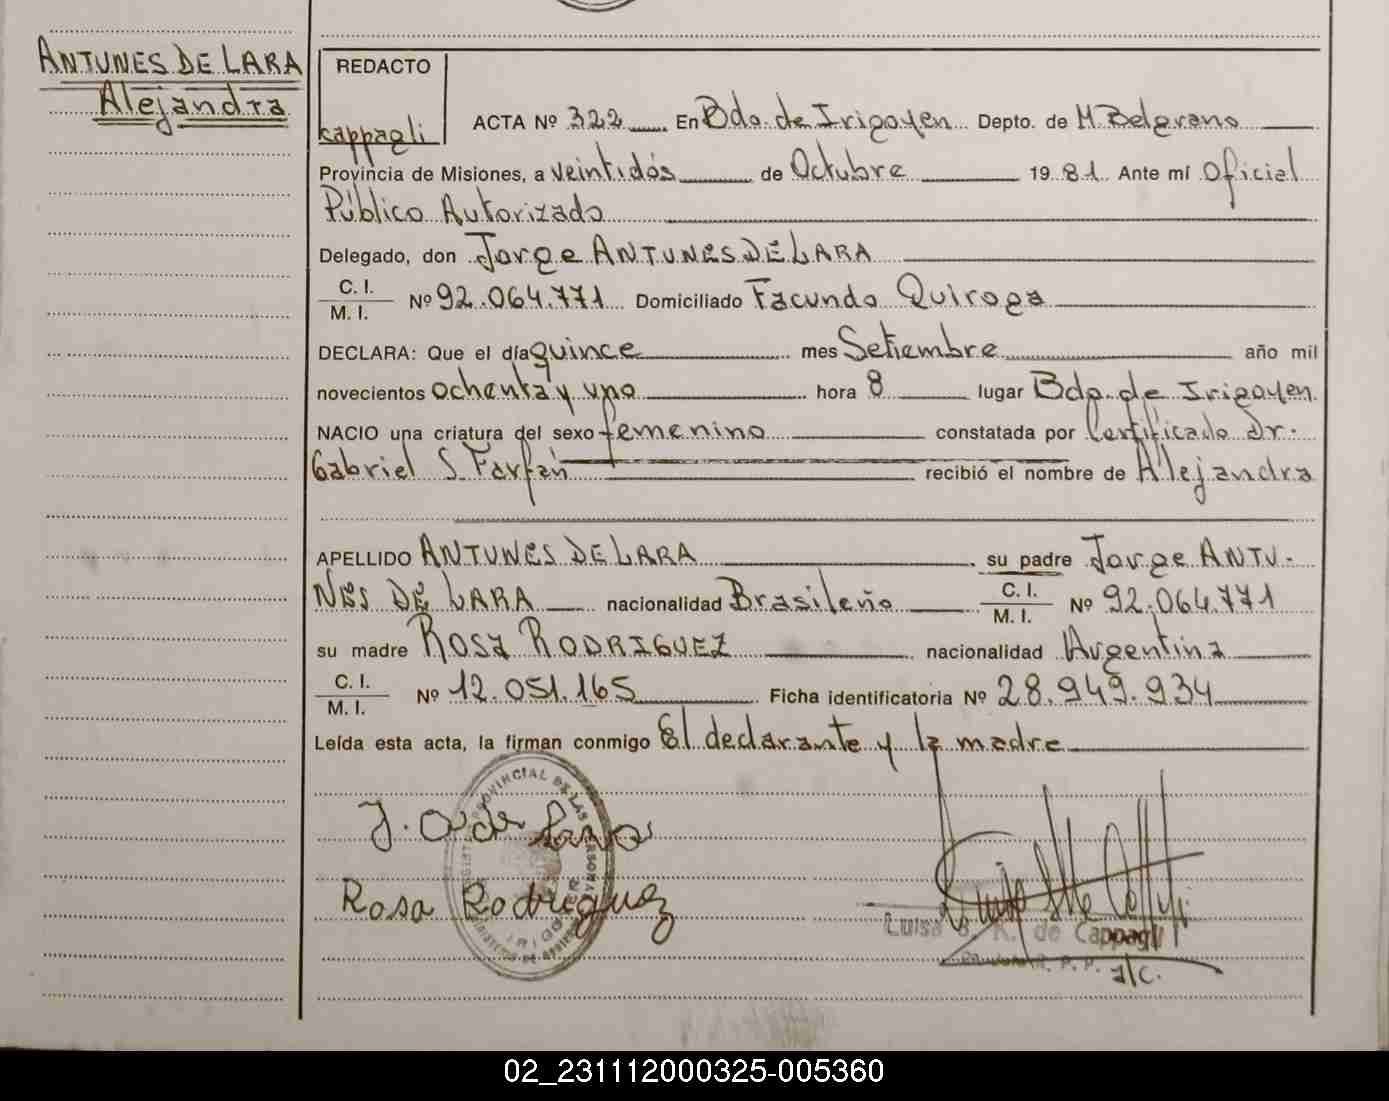 ANTUNES DE LARA
Alejandra
REDACTO
cappagli
ACTA Nº 322 En Bdo. de Irigoyen Depto. de M. Belgrano
Provincia de Misiones, a veintidós de Octubre 19 81 Ante mí Oficial
Público Autorizado
Delegado, don Jorge ANTUNES DE LARA
C. I.
M. I. Nº 92.064.771 Domiciliado Facundo Quiroga
DECLARA: Que el día quince mes Setiembre año mil
novecientos ochenta y uno hora 8 lugar Bdo. de Irigoyen
NACIO una criatura del sexo femenino constatada por Certificado Dr.
Gabriel S. Farfan recibió el nombre de Alejandra
APELLIDO ANTUNES DE LARA su padre Jorge ANTU-
NES DE LARA nacionalidad Brasileño C. I.
M. I. Nº 92.064.771
su madre Rosa RODRIGUEZ nacionalidad Argentina
C. I.
M. I. Nº 12.051.165 Ficha identificatoria Nº 28.949.934
Leída esta acta, la firman conmigo El declarante y la madre
J. A de Lara
Rosa Rodriguez
Luisa B. K. de Cappagli
a/c.
02_231112000325-005360